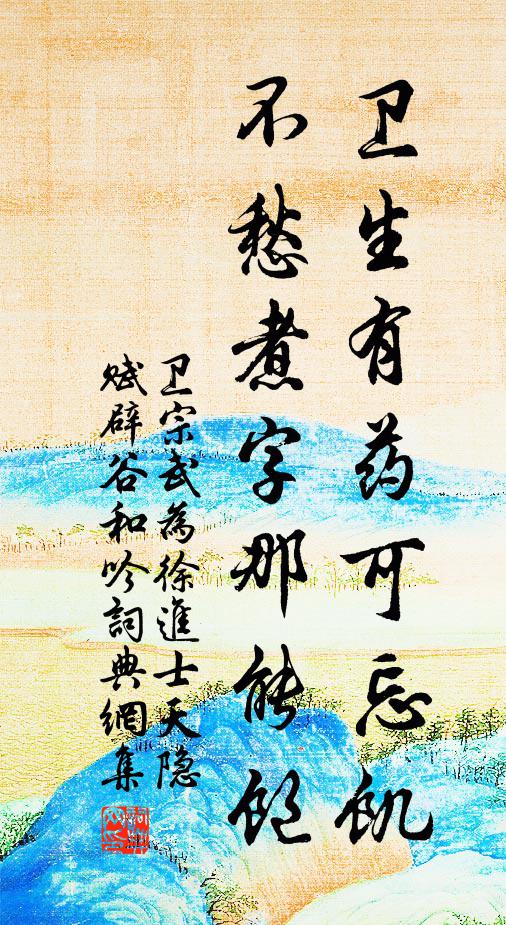 卫生有药可忘飢
不愁煮字那能饱
卫宗武為徐進士天隐
赋辟谷和吟詞典網集